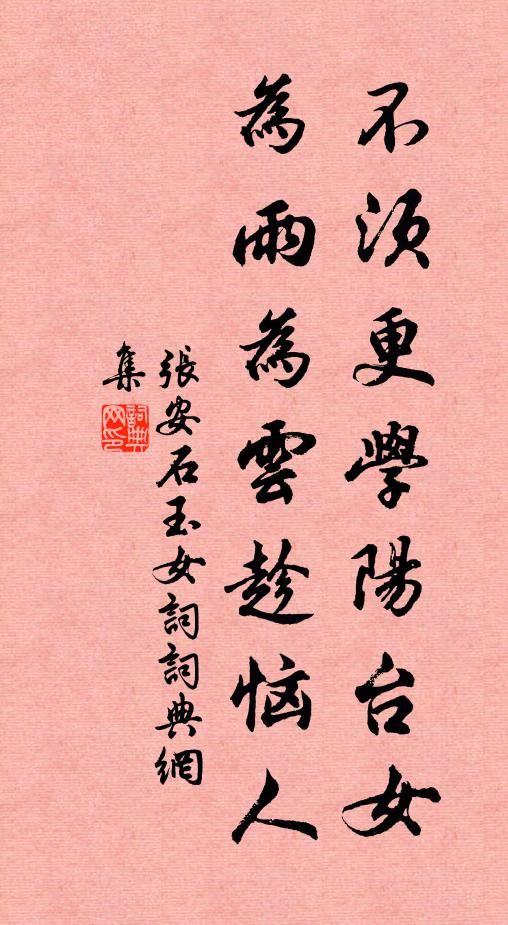 不須更學陽台女
為雨為雲趁恼人
張安石玉女詞詞典網
集
詞典
网印